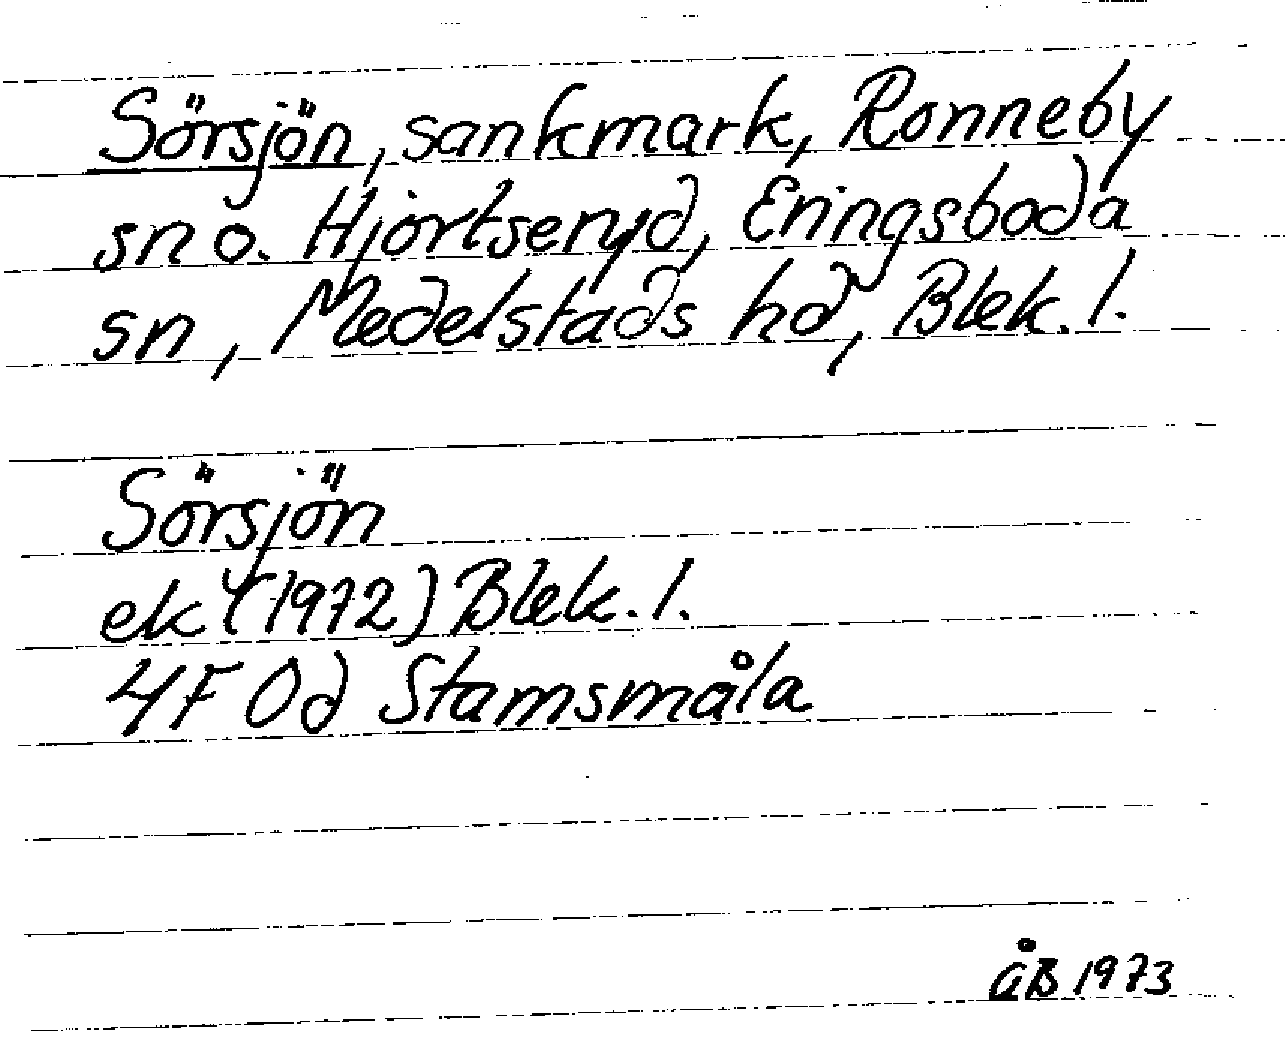 Sörsjön, sankmark, Ronneby
sn o. Hjortseryd, Eringsboda
sn, Medelstads hd, Blek. l.
Sörsjön
ek (1972) Blek. l.
4F 0d Stamsmåla
åB 1973